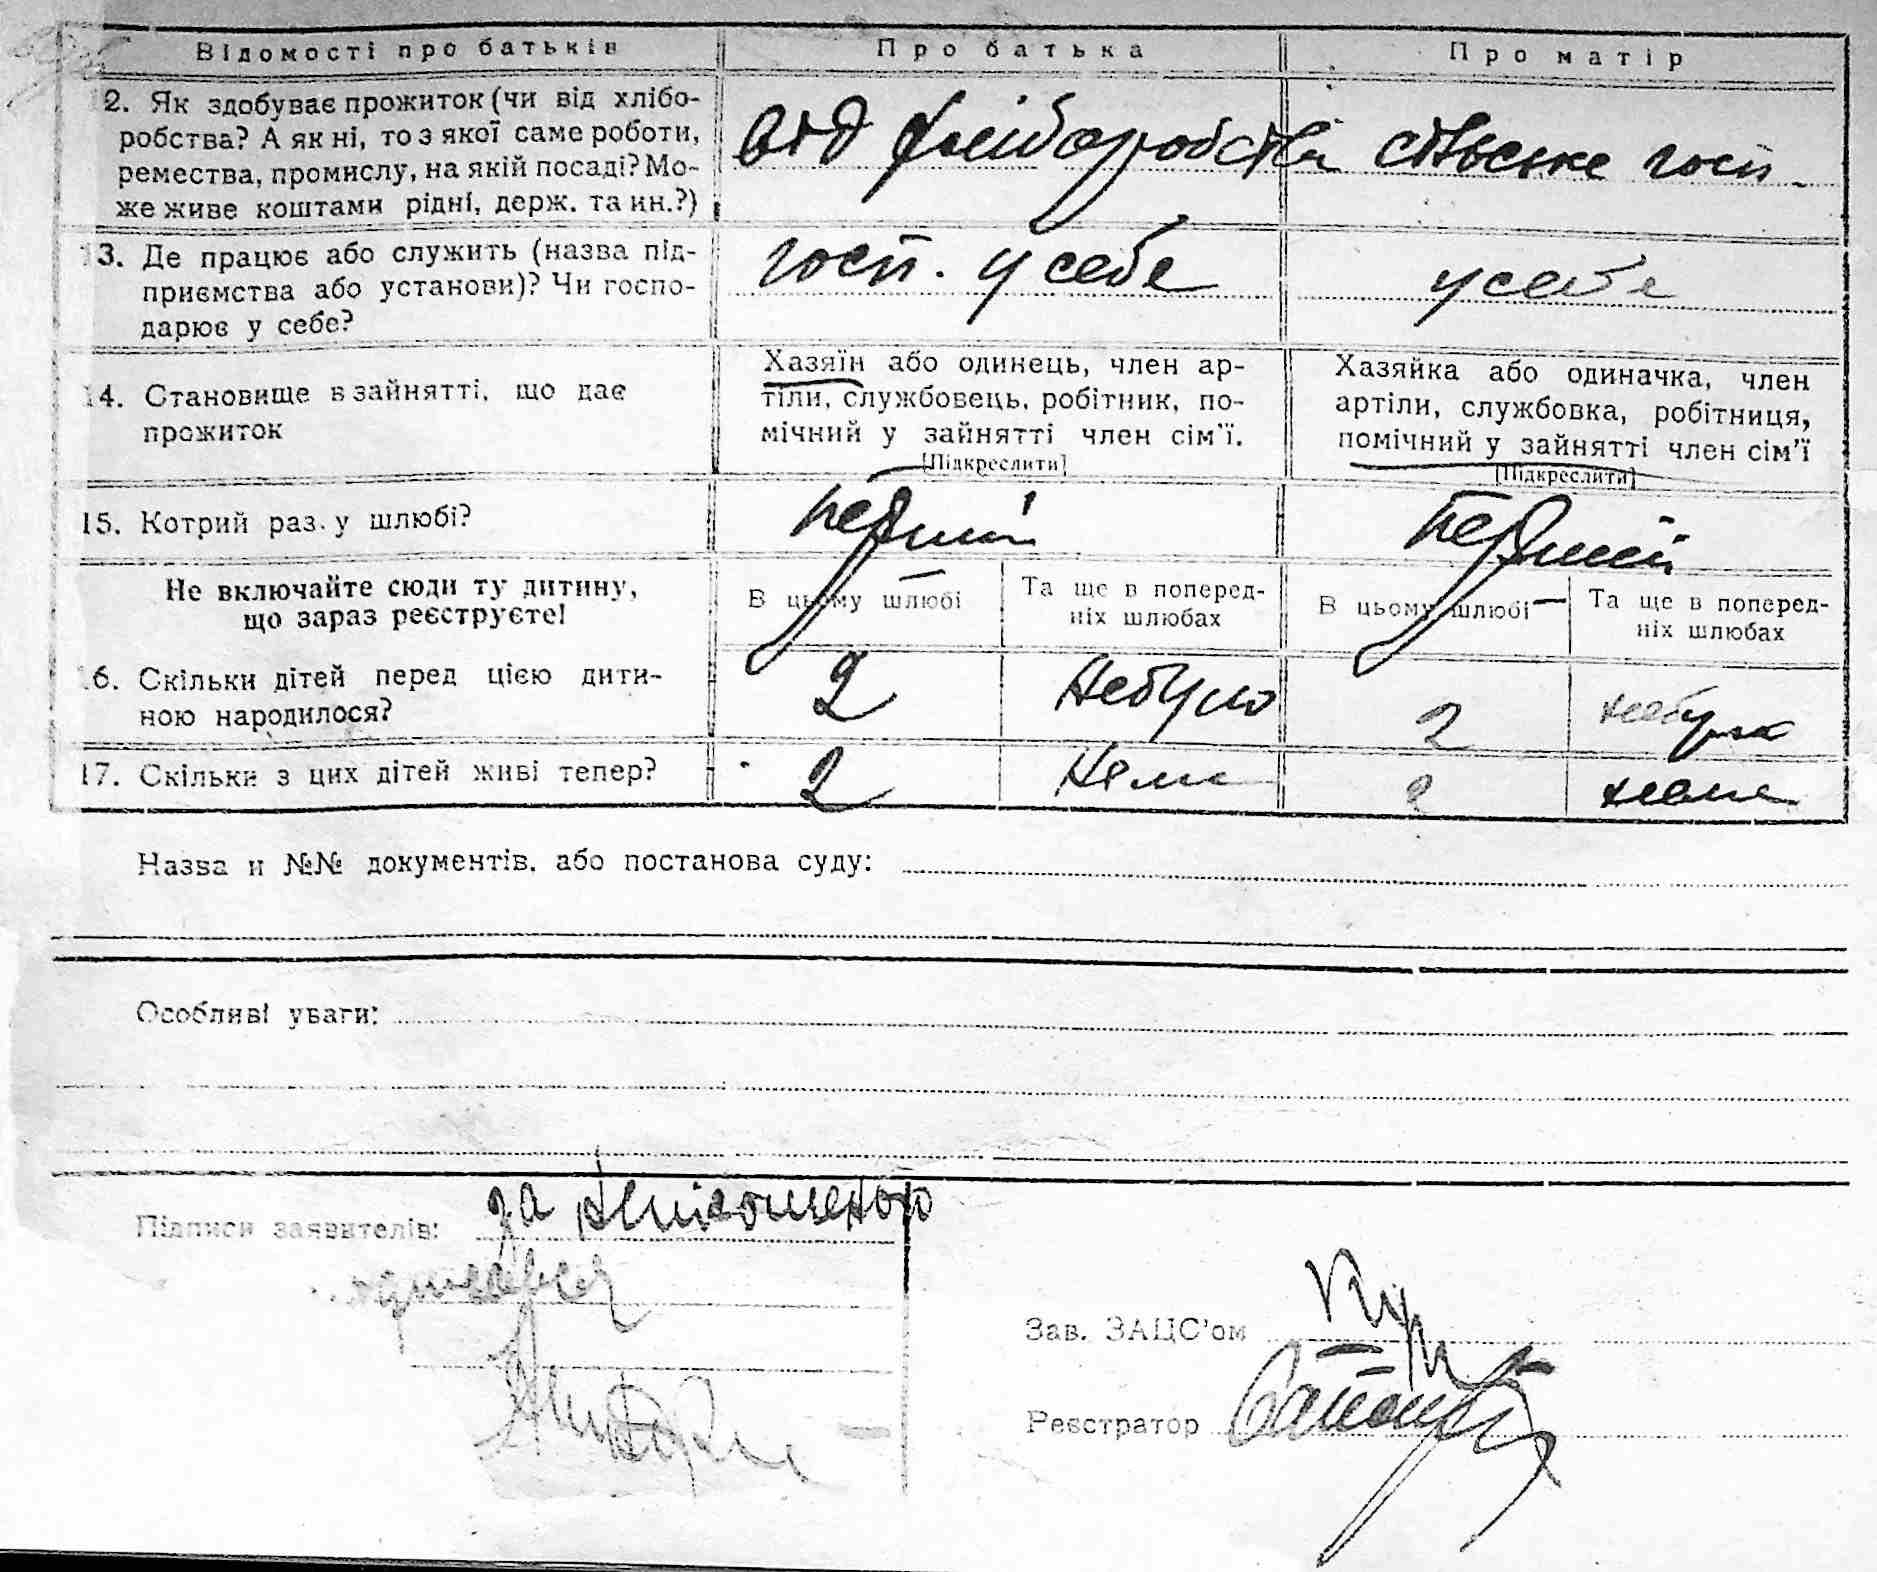 Відомості про батьків Про батька Про матір
2. Як здобуває прожиток (чи від хлібо-
робства? А як ні, то з якої саме роботи,
ремества, промислу, на якій посаді? Мо-
же живе коштами рідні, держ. та ин.?)
від хліборобства сільське госп.
13. Де працює або служить (назва під-
приємства або установи)? Чи госпо-
дарює у себе?
госп. у себе
у себе
14. Становище в зайнятті, що дає
прожиток
Хазяїн або одинець, член ар-
тіли, службовець, робітник, по-
мічний у зайнятті член сім'ї.
[Підкреслити]
Хазяйка або одиначка, член
артіли, службовка, робітниця,
помічний у зайнятті член сім'ї
[Підкреслити]
15. Котрий раз у шлюбі?
перший
перший
Не включайте сюди ту дитину,
що зараз реєструєте!
В цьому шлюбі
Та ще в поперед-
ніх шлюбах
В цьому шлюбі
Та ще в поперед-
ніх шлюбах
6. Скільки дітей перед цією дити-
ною народилося?
2 небуло 2 небуло
17. Скільки з цих дітей живі тепер?
2 нема 2 нема
Назва и №№ документів, або постанова суду:
Особливі уваги:
Підписи заявителів: за неписьменого
Зав. ЗАЦС'ом
Реєстратор